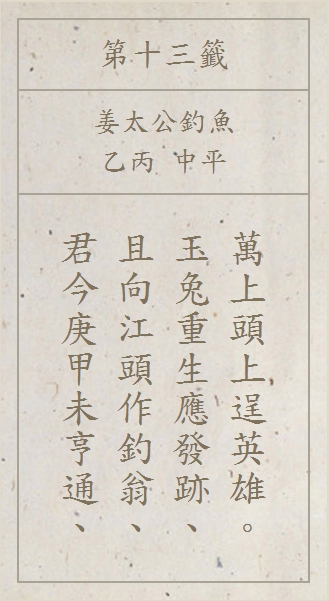 第十三籤
姜太公釣魚
乙丙 中平
君今庚甲未亨通、
且向江頭作釣翁、
玉兔重生應發跡、
萬上頭上逞英雄。